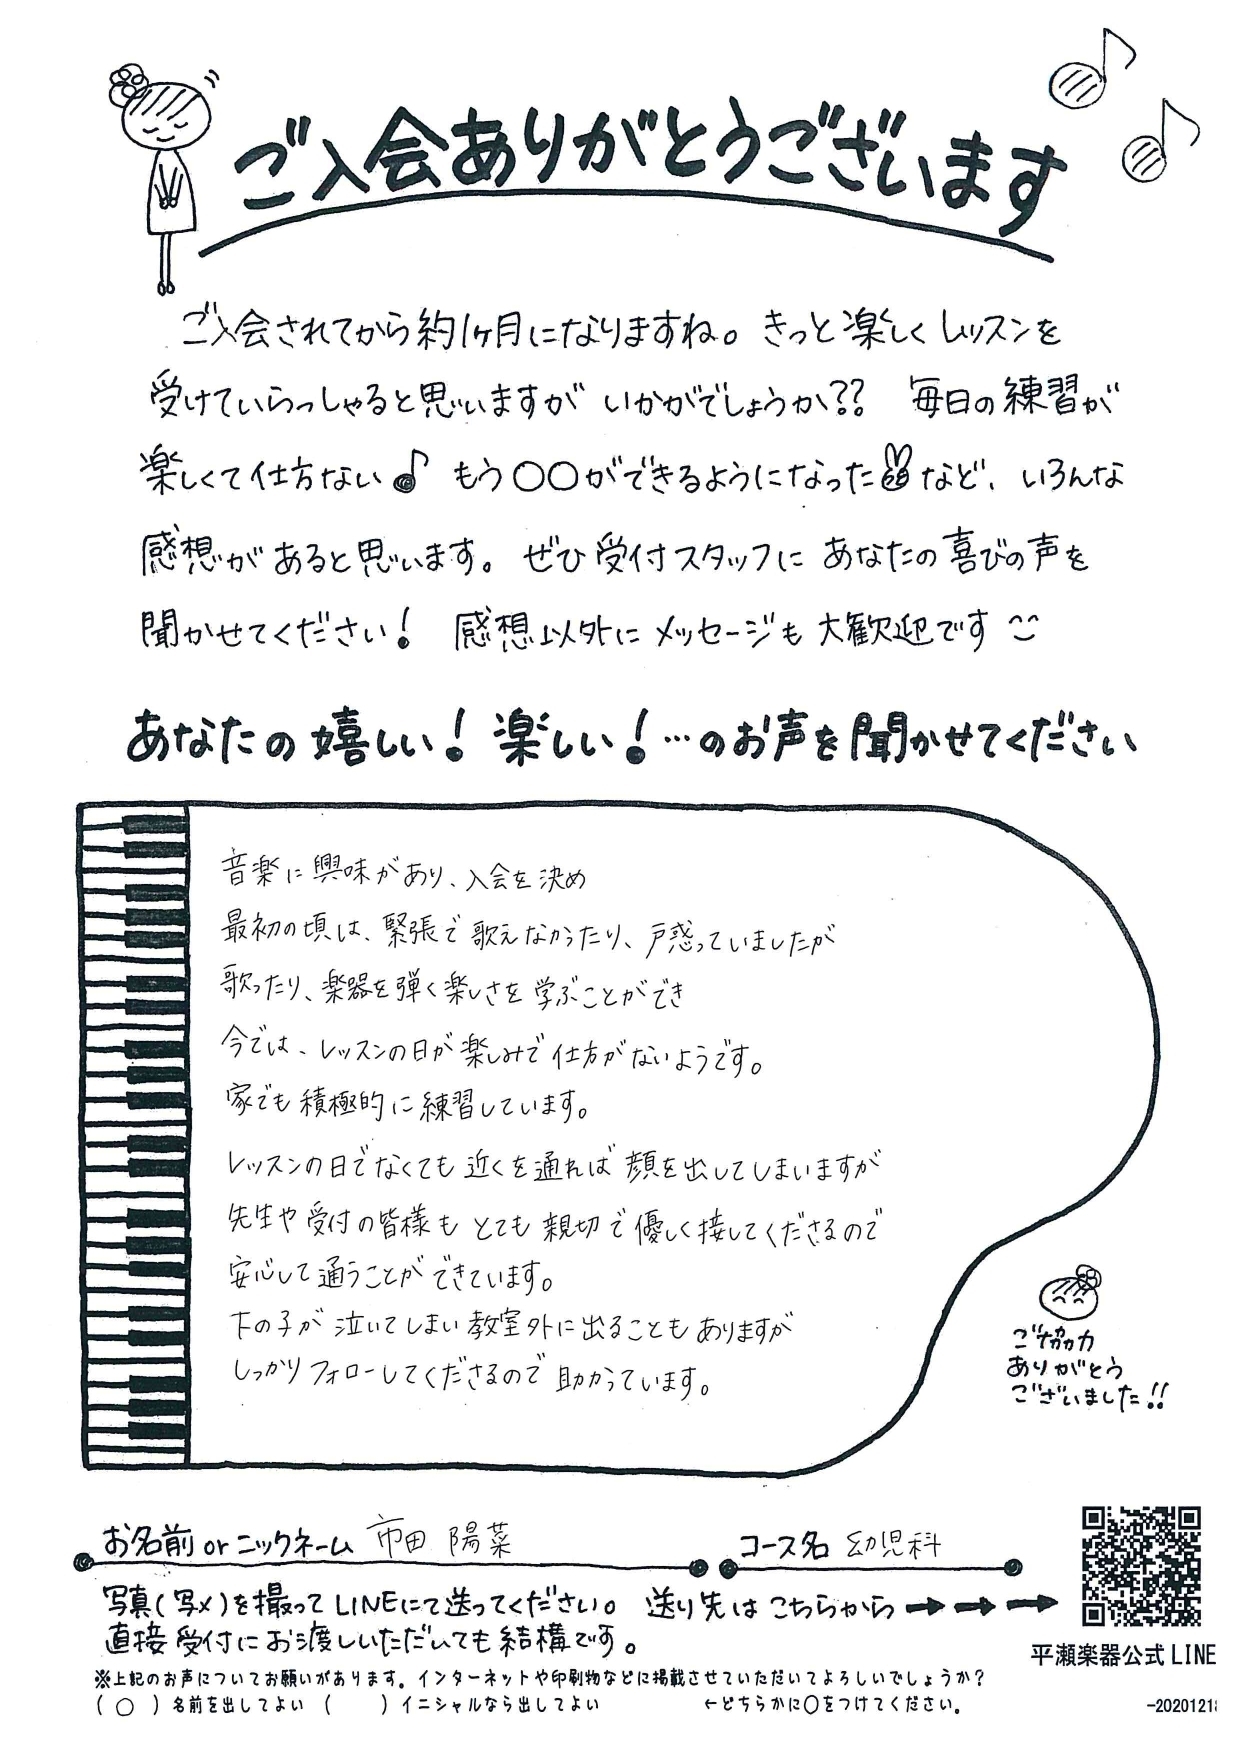 ご入会ありがとうございます
ご入会されてから約1ヶ月になりますね。きっと楽しくレッスンを
受けていらっしゃると思いますが いかがでしょうか?? 毎日の練習が
楽しくて仕方ない♪ もう〇〇ができるようになった✌など、いろんな
感想があると思います。ぜひ受付スタッフに あなたの喜びの声を
聞かせてください! 感想以外にメッセージも大歓迎です
あなたの嬉しい!楽しい!…のお声を聞かせてください
音楽に興味があり、入会を決め
最初の頃は、緊張で歌えなかったり、戸惑っていましたが
歌ったり、楽器を弾く楽しさを学ぶことができ
今では、レッスンの日が楽しみで仕方がないようです。
家でも積極的に練習しています。
レッスンの日でなくても近くを通れば顔を出してしまいますが
先生や受付の皆様もとても親切で優しく接してくださるので
安心して通うことができています。
下の子が泣いてしまい教室外に出ることもありますが
しっかりフォローしてくださるので助かっています。
ご協力
ありがとう
ございました!!
お名前orニックネーム 市田 陽菜 コース名 幼児科
写真(写メ)を撮ってLINEにて送ってください。 送り先はこちらから→→→
直接受付にお渡しいただいても結構です。
平瀬楽器公式LINE
※上記のお声についてお願いがあります。インターネットや印刷物などに掲載させていただいてよろしいでしょうか?
(〇)名前を出してよい ( )イニシャルなら出してよい ←どちらかに〇をつけてください。
-2020121